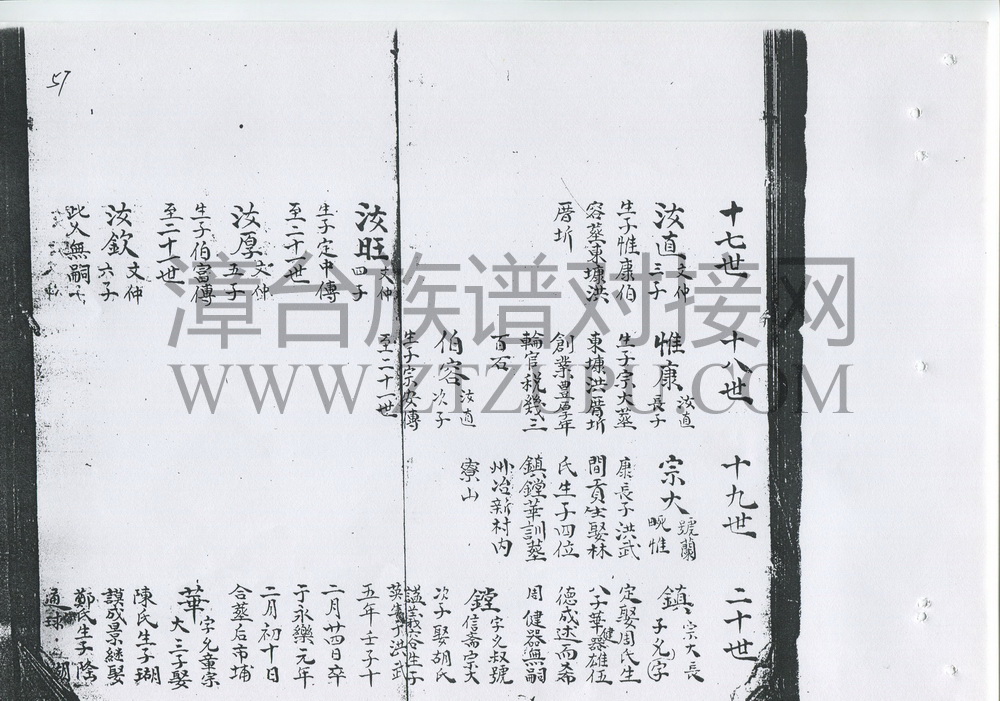 57
十七世
汝直 文仲三子
生子惟康伯
容葬東壙洪
厝圻
汝旺 文仲四子
生子定中傳
至二十一世
汝厚 文仲五子
生子伯富傳
至二十一世
汝欽 文仲六子
此父無嗣
十八世
惟康 汝直長子
生子宗大葬
東壙洪厝圻
創業豊厚年
輪官稅幾三
百石
伯容 汝直次子
生子宗安傳
至二十一世
十九世
宗大 號蘭畹惟
康長子洪武
間貢生娶林
氏生子四位
鎮鏜華訓墓
州治新村內
寮山
二十世
鎮 宗大長子兄字
定娶周氏生
六子華器雄伍
健
德成述而希
周健器無嗣
鏜 字兄叔號信斋宗大
次子娶胡氏
謚義容生子
英葬于洪武
五年壬子十
二月廿四日卒
于永樂元年
二月初十日
合葬后市埔
華 字兄董宗大三子娶
陳氏生子瑚
謨成景繼娶
鄭氏生子隆
通球
漳台族谱对接网
WWW.ZTZUPU.COM